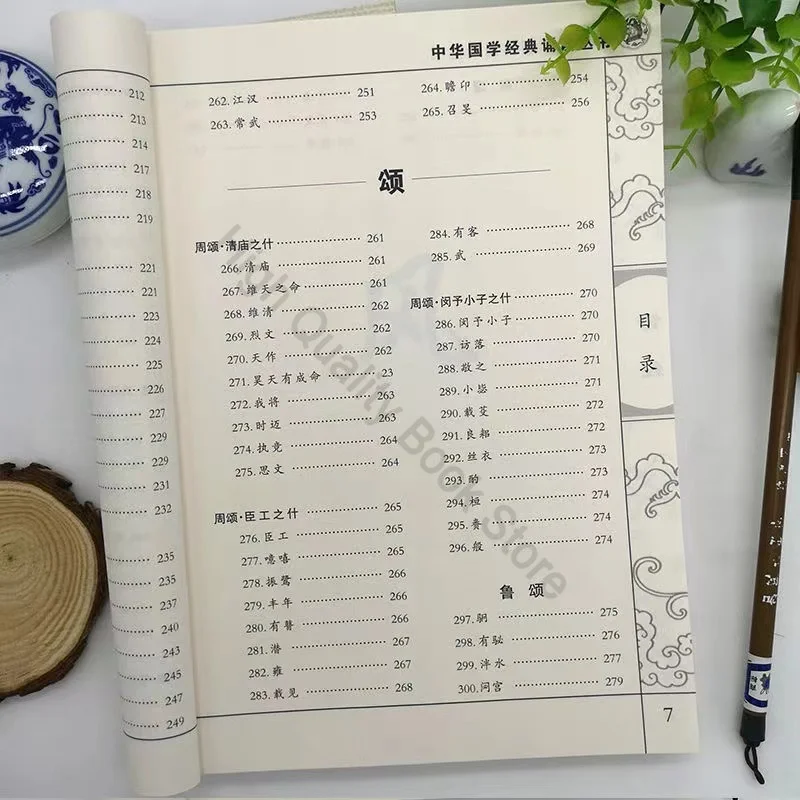 中华国学经典诵
212
213
214
217
218
219
221
221
223
224
225
226
227
229
229
231
232
235
235
237
240
243
245
247
249
262.江汉 251
263.常武 253
264.瞻卬 254
265.召旻 256
颂
周颂·清庙之什 261
266.清庙 261
267.维天之命 261
268.维清 262
269.烈文 262
270.天作 262
271.昊天有成命 23
272.我将 263
273.时迈 263
274.执竞 264
275.思文 264
周颂·臣工之什 265
276.臣工 265
277.噫嘻 265
278.振鹭 266
279.丰年 266
280.有瞽 266
281.潜 267
282.雍 267
283.载见 268
284.有客 268
285.武 269
周颂·闵予小子之什 270
286.闵予小子 270
287.访落 270
288.敬之 271
289.小毖 271
290.载芟 272
291.良耜 272
292.丝衣 273
293.酌 273
294.桓 274
295.赉 274
296.般 274
鲁颂
297.駉 275
298.有駜 276
299.泮水 277
300.閟宫 279
目录
7
High Quality Book Store